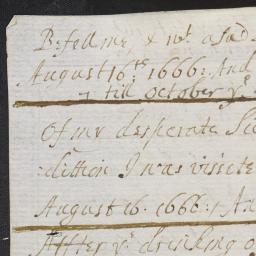 Befell me, & wt. a sad
August 16th: 1666: And
till October ye
Of my desperate
dition I was vissete
August 16. 1666: An
Affter ye. drinking o